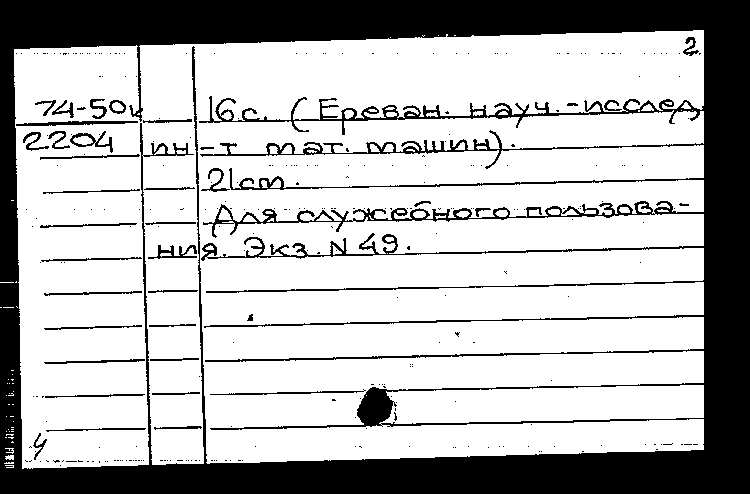 2
74-50к 16 с. (Ереван. науч.-исслед.
2204 ин-т мат. машин).
21 cm.
Для служебного пользова-
ния. Экз. N 49.
у